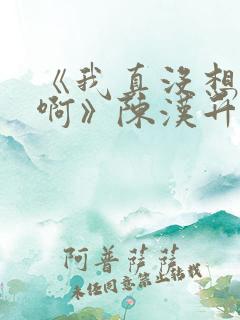 《我真没想
啊》陈汉升
阿普萨萨
未经同意禁止转载